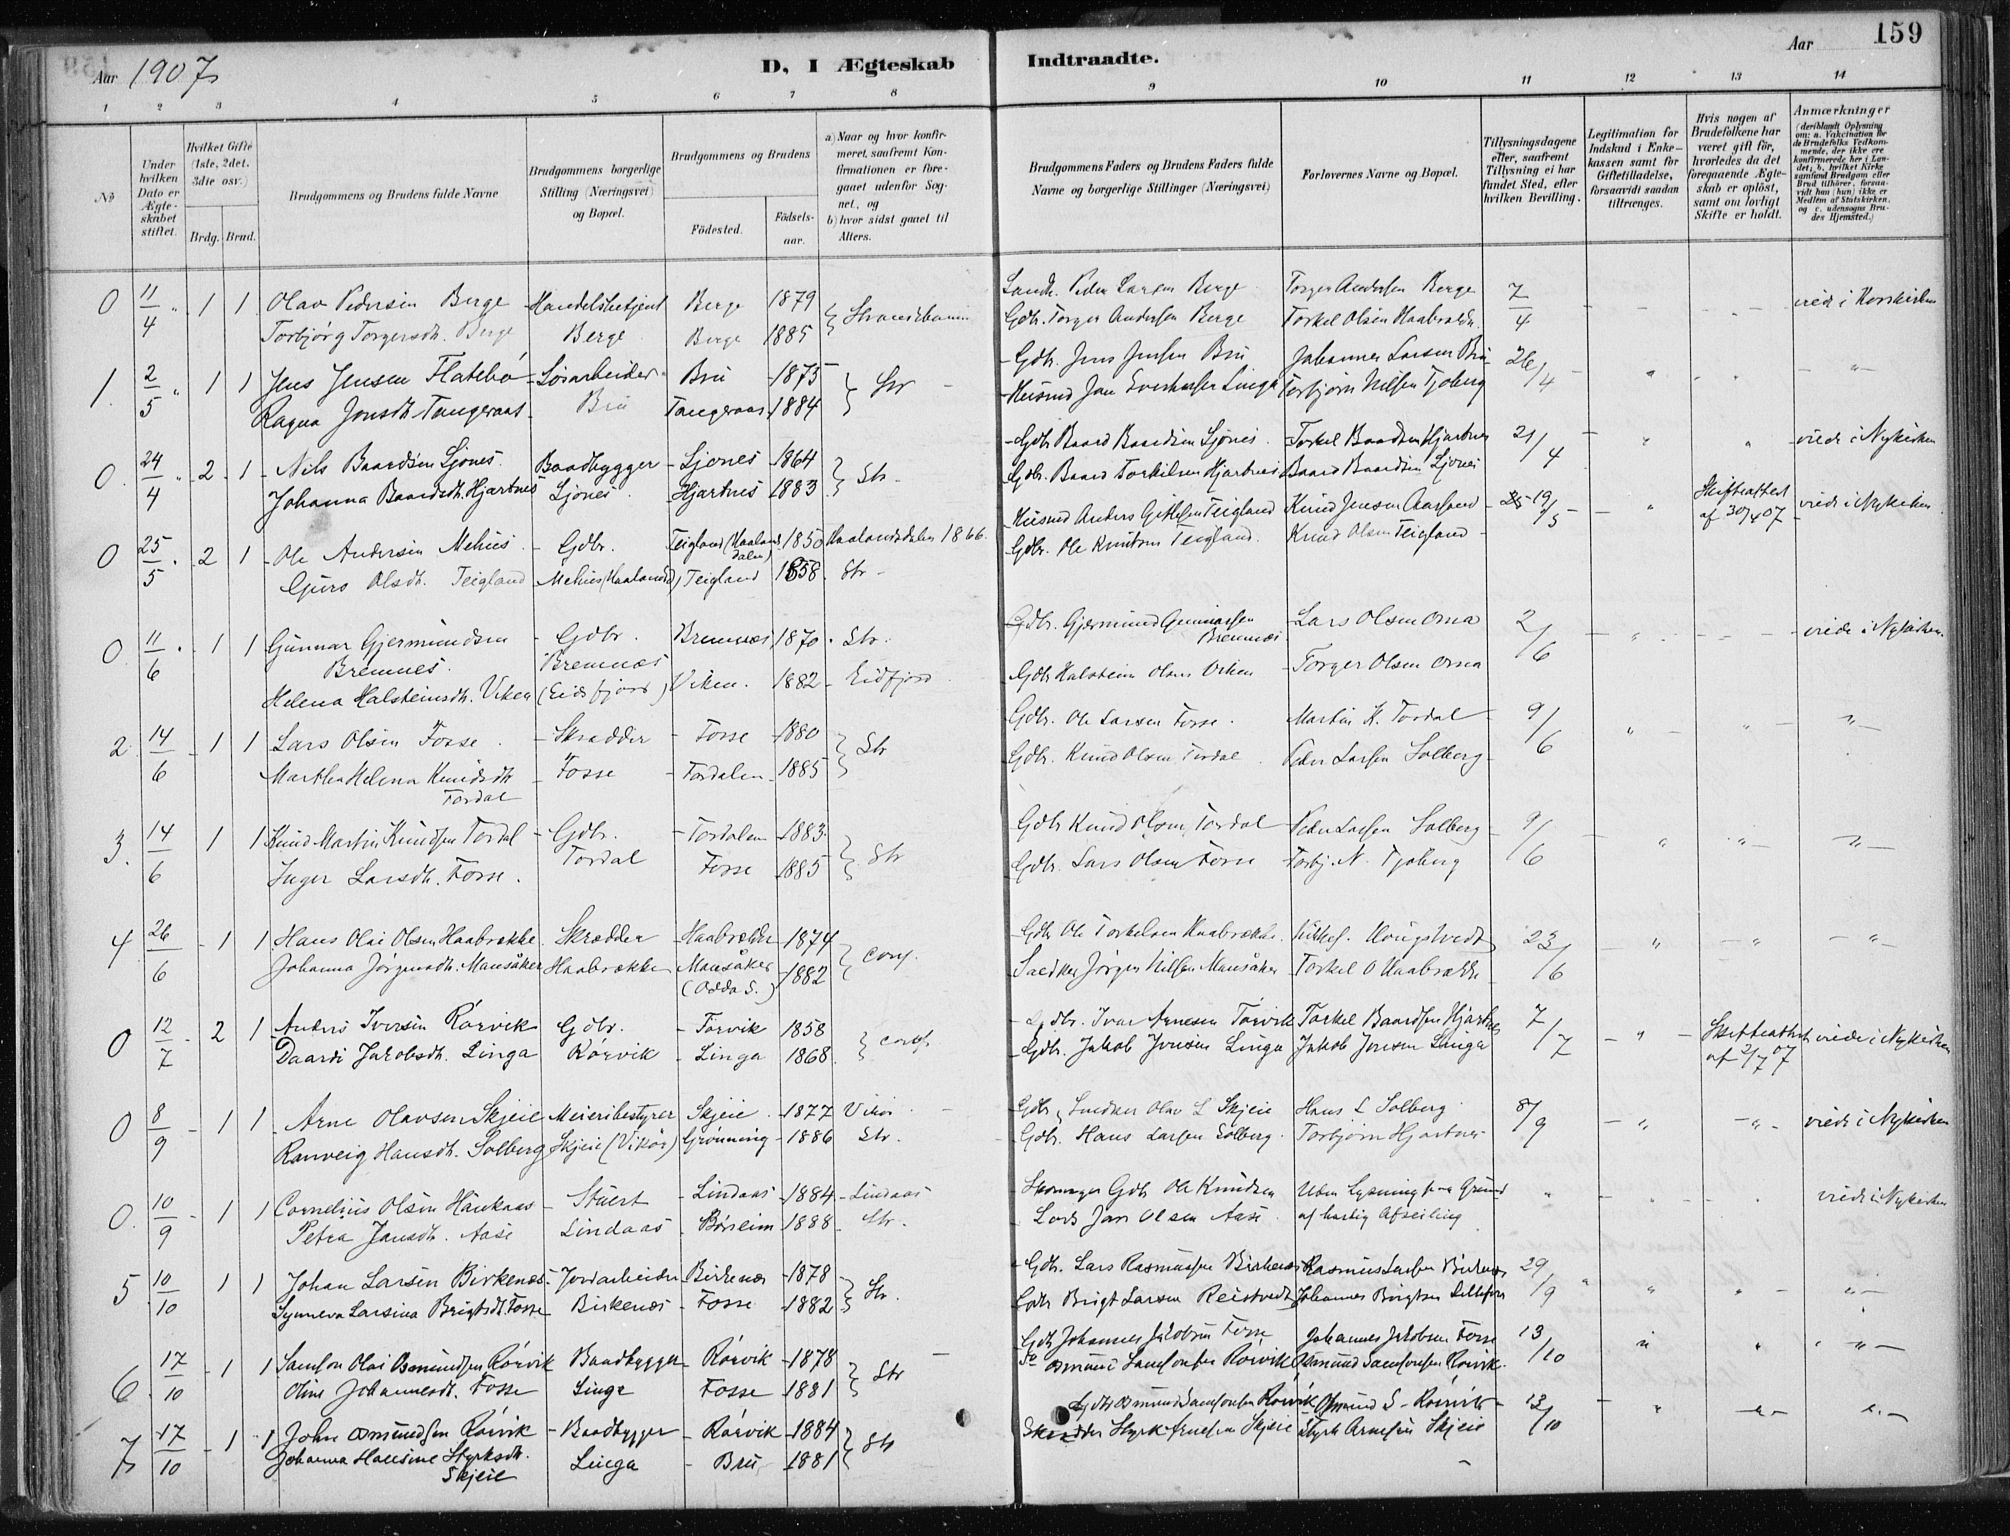 159
Aar 1907
D, I Ægteskab Indtraadte.
Aar
1 2 3 4 5 6 7 8 9 10 11 12 13 14
No
Under hvilken Dato er Ægteskabet stiftet.
Hvilket Gifte (1ste, 2det, 3die osv.)
Brdg. Brud.
Brudgommens og Brudens fulde Navne
Brudgommens borgerlige Stilling (Næringsvei) og Bopæl.
Brudgommens og Brudens
Födested.
Födselsaar.
a) Naar og hvor konfirmeret, saafremt Konfirmationen er foregaaet udenfor Sognet, og
b) hvor sidst gaaet til Alters.
Brudgommens Faders og Brudens Faders fulde Navne og borgerlige Stillinger (Næringsvei)
Forlovernes Navne og Bopæl.
Tillysningsdagene eller, saafremt Tillysning ei har fundet Sted, efter hvilken Bevilling.
Legitimation for Indskud i Enkekassen samt for Giftetilladelse, forsaavidt saadan tiltrænges.
Hvis nogen af Brudefolkene har været gift för, hvorledes da det foregaaende Ægteskab er oplöst, samt om lovligt Skifte er holdt.
Anmærkninger (deriblandt Oplysning om: a. Vakcination for de Brudefolks Vedkommende, der ikke ere konfirmerede her i Landet; b. hvilket Kirkesamfund Brudgom eller Brud tilhörer, forsaavidt han (hun) ikke er Medlem af Statskirken, og c. udensogns Brudes Hjemsted.)
0 11/4 1 1 Olav Pedersen Berge Handelsbetjent Berge 1879 Strandebarm Landh. Peder Larsen Berge Torger Andersen Berge 7/4 viede i Korskirken
Torbjørg Torgersdh. Berge Berge Berge 1885 Gdbr. Torger Andersen Berge Torkel Olsen Haabrække
1. 2/5 1 1 Jens Jensen Flatebø Løsarbeider Bru 1875 Str Gdbr. Jens Jensen Bru Johannes Larsen Bru 26/4
Ragna Jonsdh. Tangeraas Bru Tangeraas 1884 Husmd Jon Linga Torbjørn Nilsen Tjoberg
0 24/4 2 1 Nils Baardsen Ljones Baadbygger Ljones 1864 Str Gdbr Baard Baardsen Ljones Torkel Baardsen Hjartnes 21/4 viede i Nykirken
Johanna Baardsdh. Hjartnes Ljones Hjartnes 1883 Gdbr. Baard Torkilsen Hjartnes Baard Baardsen Ljones
0 25/5 2 1 Ole Andersen Melhus Gdbr. Teigland (Haalandsdalen) 1850 Haalandsdalen 1866 Husmd Anders Teigland Knud Jensen 19/5 Skifteattest af 30/4 07 viede i Nykirken
Guro Olsdh. Teigland Melhus (Haalandsd) Teigland 1858 Str Gdbr. Ole Knutsen Teigland Knud Olsen Teigland
0 11/6 1 1 Gunnar Gjermundsen Bremnes Gdbr. Bremnæs 1870 Str. Gdbr. Gjermund Gunnarsen Bremnes Lars Olsen Oma 2/6 viede i Nykirken
Helena Halsteinsdh. Viken Bremnæs (Eidfjord) Viken 1882 Eidfjord Gdbr Halstein Olsen Viken Torger Olsen Oma
2 14/6 1 1 Lars Olsen Fosse Skrædder Fosse 1880 Str Gdbr. Ole Larsen Fosse Martin K. Tordal 9/6
Martha Helena Knudsdh Tordal Fosse Tordalen 1885 Gdbr. Knud Olsen Tordal Peder Larsen Solberg
3. 14/6 1 1 Knud Martin Knudsen Tordal Gdbr. Tordalen 1883 Str Gdbr Knud Olsen Tordal Peder Larsen Solberg 9/6
Inger Larsdh. Fosse Tordal Fosse 1885 Gdbr. Lars Olsen Fosse Torbj. N. Tjoberg
4 26/6 1 1 Hans Olai Olsen Haabrække Skrædder Haabrække 1874 conf. Gdbr Ole Torkelsen Haabrække 23/6
Johanna Jørgensdh. Mansåker Haabrække Mansåker (Odda S.) 1882 Jørgen Nilsen Mansåker Torkel O Haabrække
0 12/7 2 1 Anders Iversen Rørvik Gdbr. Torvik 1858 conf. Gdbr. Ivar Arnesen Torvik Torkel Baardsen Hjartnes 7/7 Skifteattest af 2/7 07 viede i Nykirken
Jakobsdh. Linga Rørvik Linga 1868 Gdbr. Jakob Jonsen Linga Jakob Jonsen Linga
0 8/9 1 1 Arne Olavsen Skjeie Meieribestyrer Skjeie 1877 Vikør Gdbr. Olav L Skjeie Hans L Solberg 8/9 viede i Nykirken
Ranveig Hansdh. Solberg Skjeie (Vikør) Grønning 1886 Str. Gdbr. Hans Larsen Solberg Torbjørn Hjartnes
0. 10/9 1 1 Cornelius Olsen Haukaas Stuert Lindaas 1884 Lindaas Gdbr Ole Knudsen Uden Lysning paa Grund viede i Nykirken
Petra Jansdh. Aase Lindaas Børsheim 1888 Str. Lods Jan Olsen Aase af hastig Afseiling
5 10/10 1 1 Johan Larsen Birkenes Jordarbeider Birkenes 1878 Str. Gdbr. Lars Rasmussen Birkenes Rasmus Larsen Birkenes 29/9
Synneva Larsina Brigtsdt. Fosse Birkenes Fosse 1882 Gdbr Brigt Larsen Reistvedt Johannes Brigtsen
6. 17/10 1 1 Samson Olai Osmundsen Rørvik Baadbygger Rørvik 1878 Str Gdbr Johannes Jakobsen Fosse Johannes Jakobsen Fosse 13/10
Oline Johannesdt. Fosse Linga Fosse 1881 Osmund Samsonsen Rørvik Osmund Samsonsen Rørvik
7 17/10 1 1 John Osmundsen Rørvik Baadbygger Rørvik 1884 Str Gdbr Osmund Samsonsen Rørvik Osmund S. Rørvik 13/10
Johanna Hansine Styrksdh. Skjeie Linga Bru 1881 Skrædder Styrk Arnesen Skjeie Styrk Arnesen Skjeie